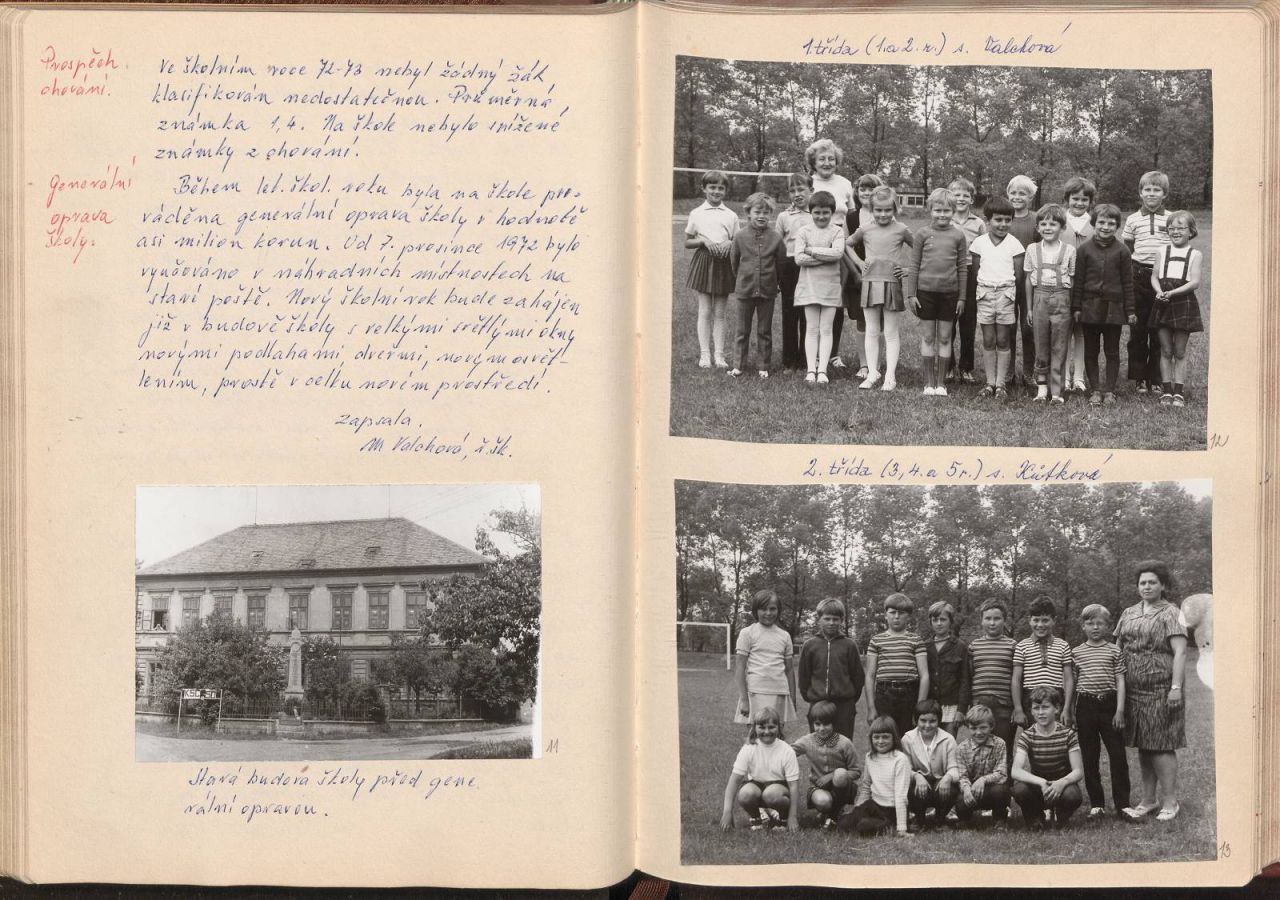 Prospěch.
chování.
Ve školním roce 72-73 nebyl žádný žák
klasifikován nedostatečnou. Průměrná
známka 1,4. Na škole nebylo snížené
známky z chování.
Generální
oprava
školy.
Během let. škol. roku byla na škole pro-
váděna generální oprava školy v hodnotě
asi milion korun. Od 7. prosince 1972 bylo
vyučováno v náhradních místnostech na
staré poště. Nový školní rok bude zahájen
již v budově školy s velkými světlými okny
novými podlahami, dveřmi, novým osvět-
lením, prostě v celku novém prostředí.
zapsala.
M Valchová, ř.šk.
11
Stará budova školy před gene.
rální opravou.
1.třída (1. a 2. r.) s. Valchová
12
2. třída (3, 4. a 5 r.) s. Kůtková
13